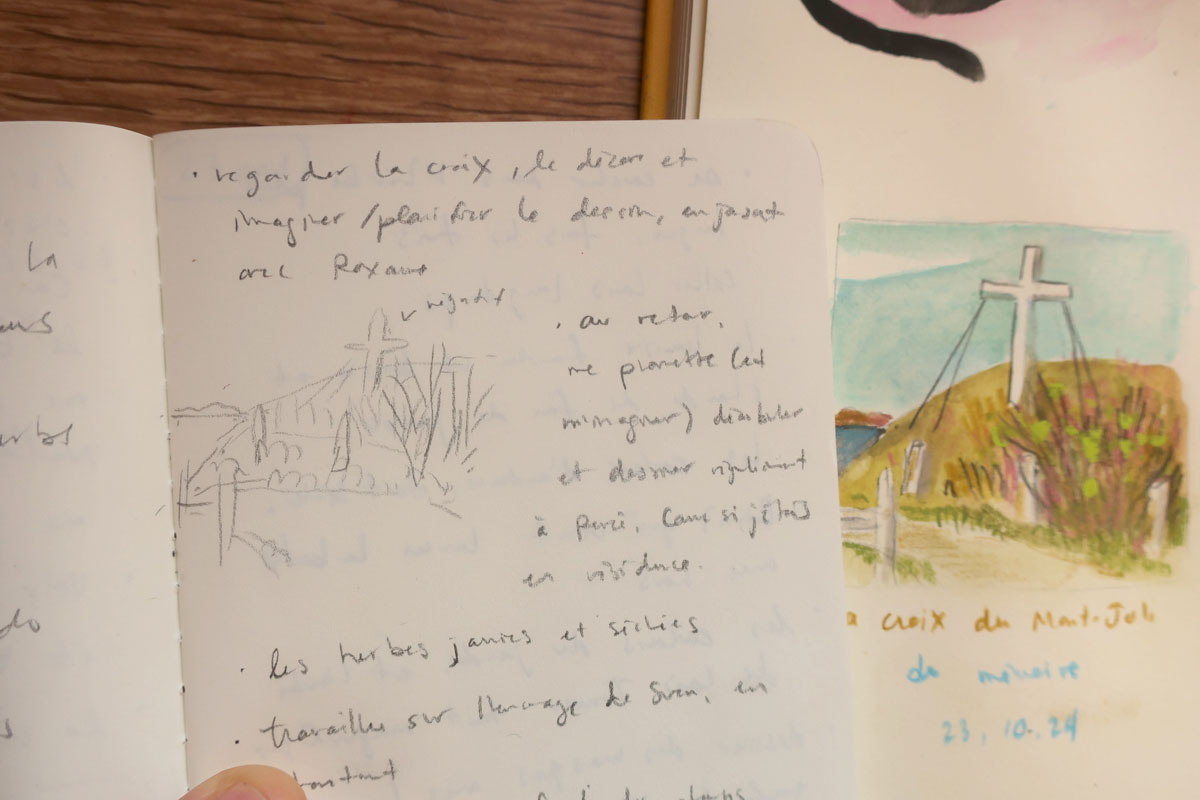 la
herbs
do
s
· regarder la croix, le décor et
imaginer / planifier le dessin, en jasant
avec Roxane
négatif
· au retour,
me promettre (et
m'imaginer) déambuler
et dessiner régulièrement
à Percé, comme si j'étais
en résidence.
· les herbes jaunies et séchées
· travailler sur l'encrage de Sven, en
a croix du Mont-Joli
de mémoire
23.10.24